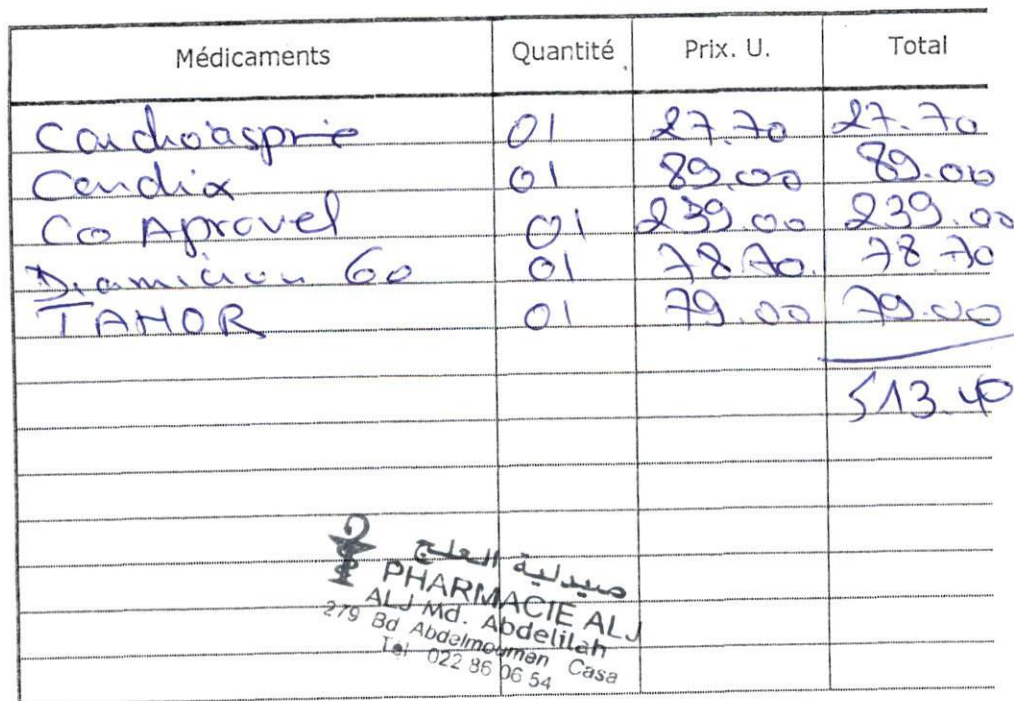 Médicaments Quantité Prix. U. Total
Cardioaspirie 01 27.70 27.70
Cardix 01 89.00 89.00
Co Aprovel 01 239.00 239.00
Diamicron 60 01 78.70. 78.70
TAHOR 01 79.00 79.00
513.40
صيدلية العلج
PHARMACIE ALJ
ALJ Md. Abdelilah
279 Bd Abdelmoumen Casa
Tel 022 86 06 54